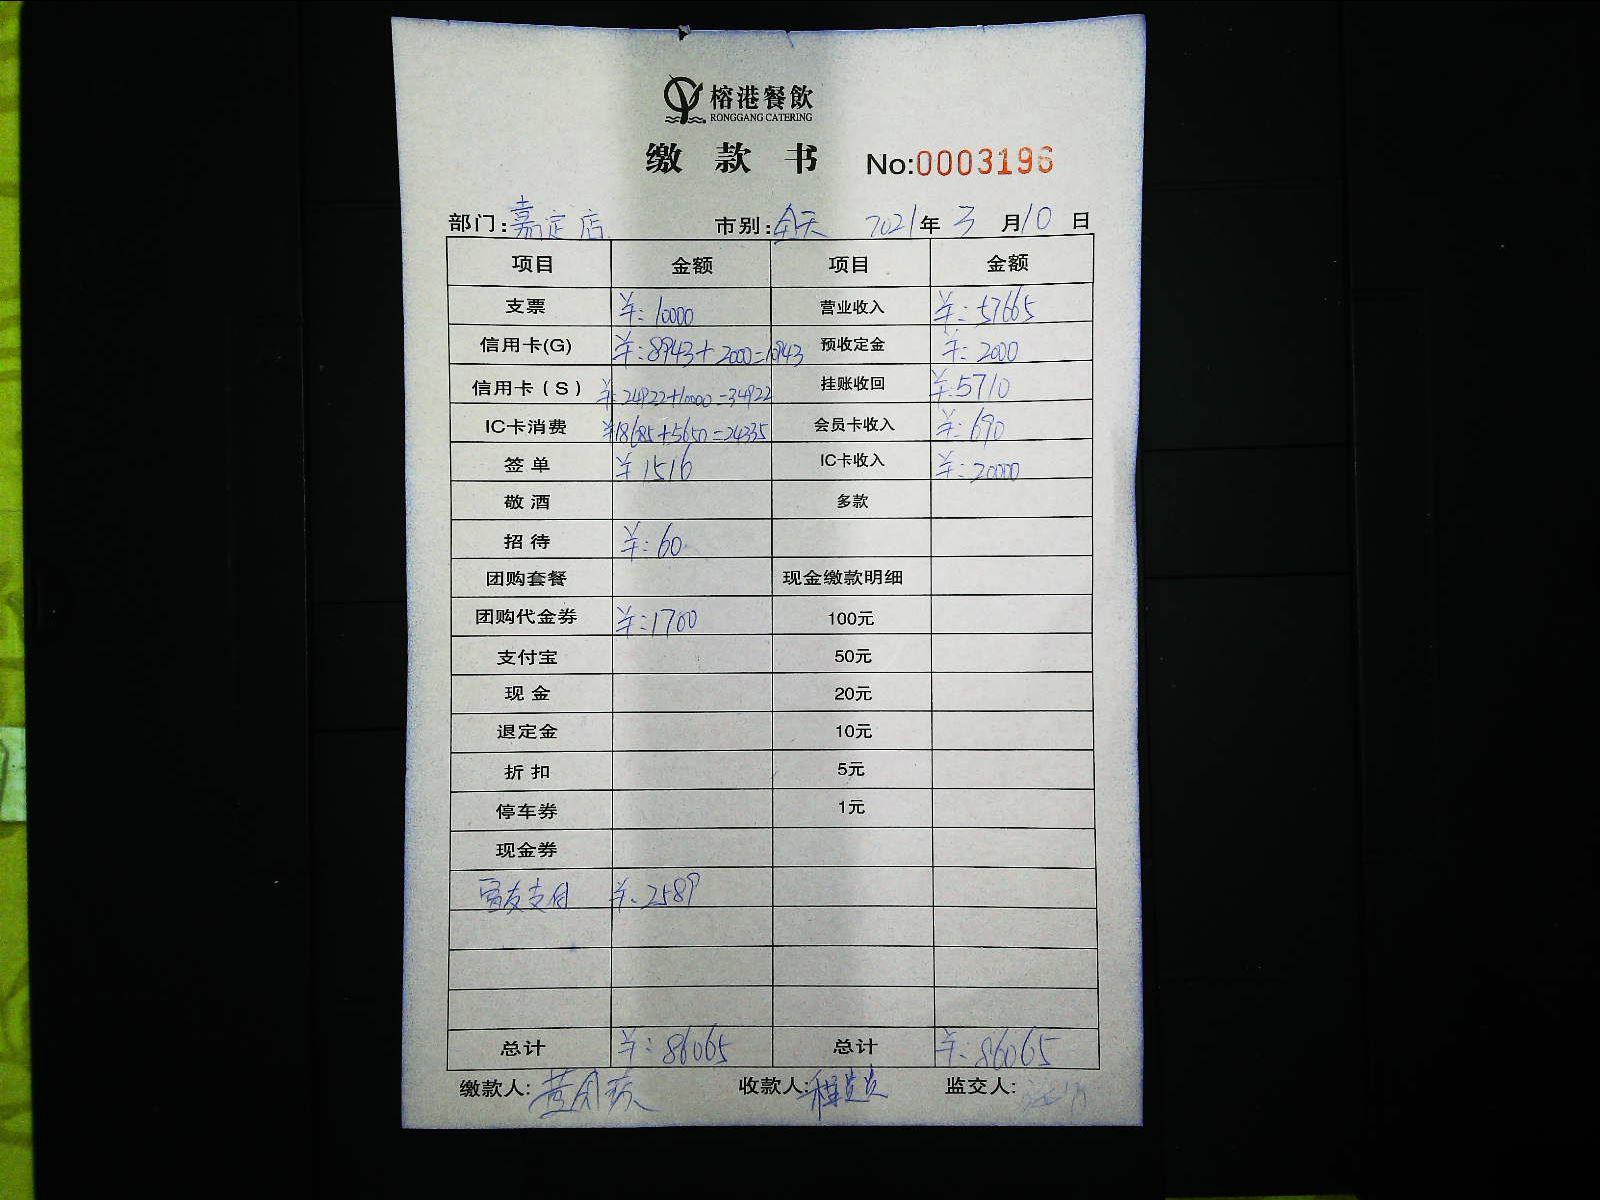 榕港餐飲
RONGGANG CATERING
缴 款 书 No:0003196
部门:嘉定店 市别:全天 2021年3月10日
项目 金额 项目 金额
支票 ¥:10000 营业收入 ¥:57665
信用卡(G) ¥:8943+2000=10943 预收定金 ¥:2000
信用卡(S) ¥:24922+10000=34922 挂账收回 ¥:5710
IC卡消费 ¥18685+5650=24335 会员卡收入 ¥:690
签单 ¥1516 IC卡收入 ¥:20000
敬酒 多款
招待 ¥:60
团购套餐 现金缴款明细
团购代金券 ¥:1700 100元
支付宝 50元
现金 20元
退定金 10元
折扣 5元
停车券 1元
现金券
支付 ¥:2589
总计 ¥:86065 总计 ¥:86065
缴款人: 收款人: 监交人: